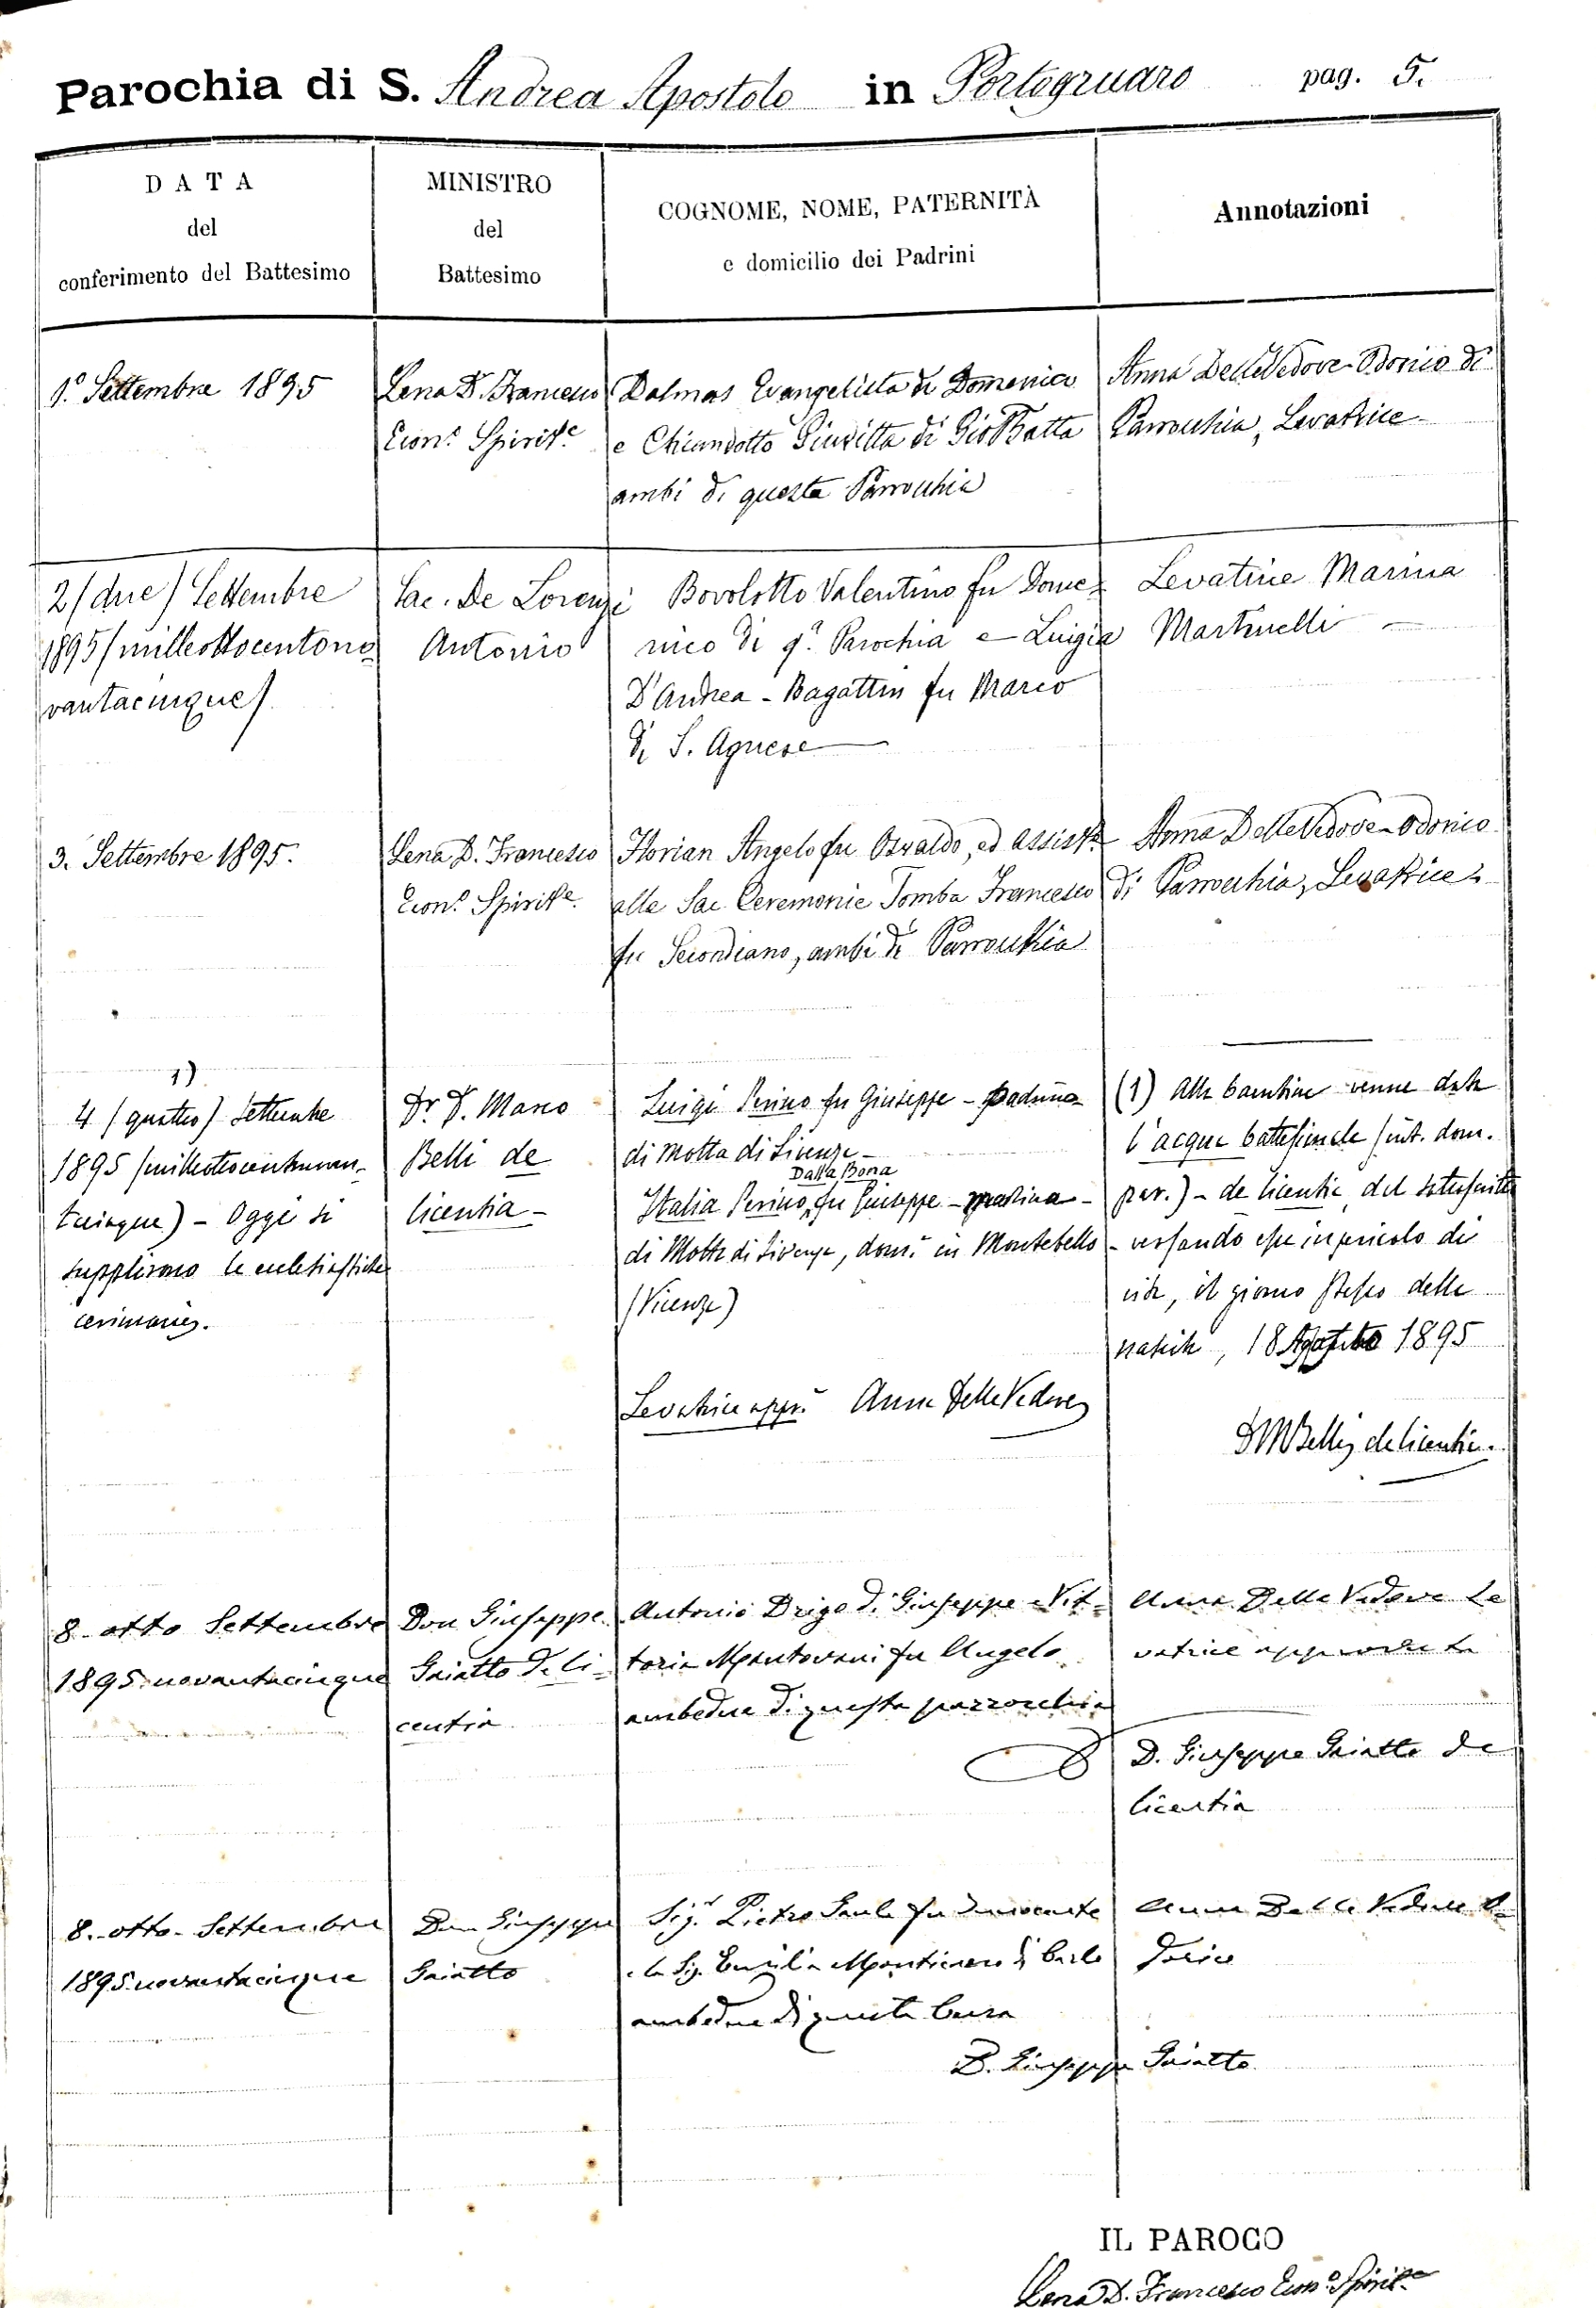 Parochia di S. Andrea Apostolo in Portogruaro pag. 5.
DATA
del
conferimento del Battesimo
MINISTRO
del
Battesimo
COGNOME, NOME, PATERNITÀ
e domicilio dei Padrini
Annotazioni
1.º Settembre 1895
Lena D. Francesco
Econº Spiritle
Dalmas Evangelista di Domenico
e Chiandotto Giuditta di Gio Batta
ambi di questa Parrocchia
Anna Delle Vedove-Odorico di
Parrocchia, Levatrice
2 (due) Settembre
1895 (milleottocentono=
vantacinque)
Sac. De Lorenzi
Antonio
Bovolotto Valentino fu Dome=
nico di qª Parochia e Luigia
D'Andrea - Bagattin fu Marco
di S. Agnese
Levatrice Marina
Martinelli
3. Settembre 1895.
Lena D. Francesco
Econº Spiritle.
Florian Angelo fu Osvaldo, ed assiste
alle Sac Ceremonie Tomba Francesco
fu Secondiano, ambi di Parrocchia
Anna Delle Vedove-Odorico
di Parrocchia, Levatrice
1)
4 (quattro) Settembre
1895 (milleottocentonovan-
tacinque) - Oggi si
supplirono le ecclesiastiche
cerimonie.
Dr D. Marco
Belli de
licentia -
Luigi Perino fu Giuseppe - padrino
di Motta di Livenza -
Dalla Bona
Italia Perino, fu Giuseppe - madrina -
di Motta di Livenza, domª in Montebello
(Vicenza)
Levatrice appr.ª Anna Delle Vedove
(1) Alla bambina venne data
l'acqua battesimale (int. dom.
par.) - de licentia del sotto firmato
- versando essa in pericolo di
vita, il giorno stesso della
nascita, 18 Agosto 1895
DMBelli, de licentia.
8. otto Settembre
1895. novantacinque
Don Giuseppe
Gaiatto de li=
centia
Antonio Drigo di Giuseppe e Vit=
toria Mantovani fu Angelo
ambedue di questa parrocchia
Anna Delle Vedove Le
vatrice approvata
D. Giuseppe Gaiatto de
licentia
8. otto. Settembre
1895. novantacinque
Don Giuseppe
Gaiatto
Sig.r Pietro fu Innocente
e la Sig. Emilia di Carlo
ambedue di questa Cura
Anna Delle Vedove
D. Giuseppe Gaiatto
IL PAROCO
Lena D. Francesco Econº Spiritle